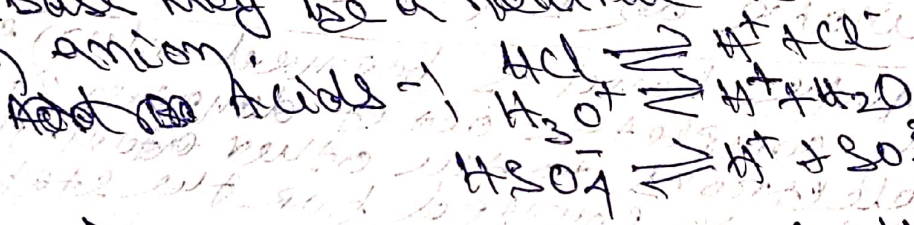 Base may be a neutral
anion.
Acids -! HCl ⇌ H⁺ + Cl⁻
H₃O⁺ ⇌ H⁺ + H₂O
HSO₄⁻ ⇌ H⁺ + SO